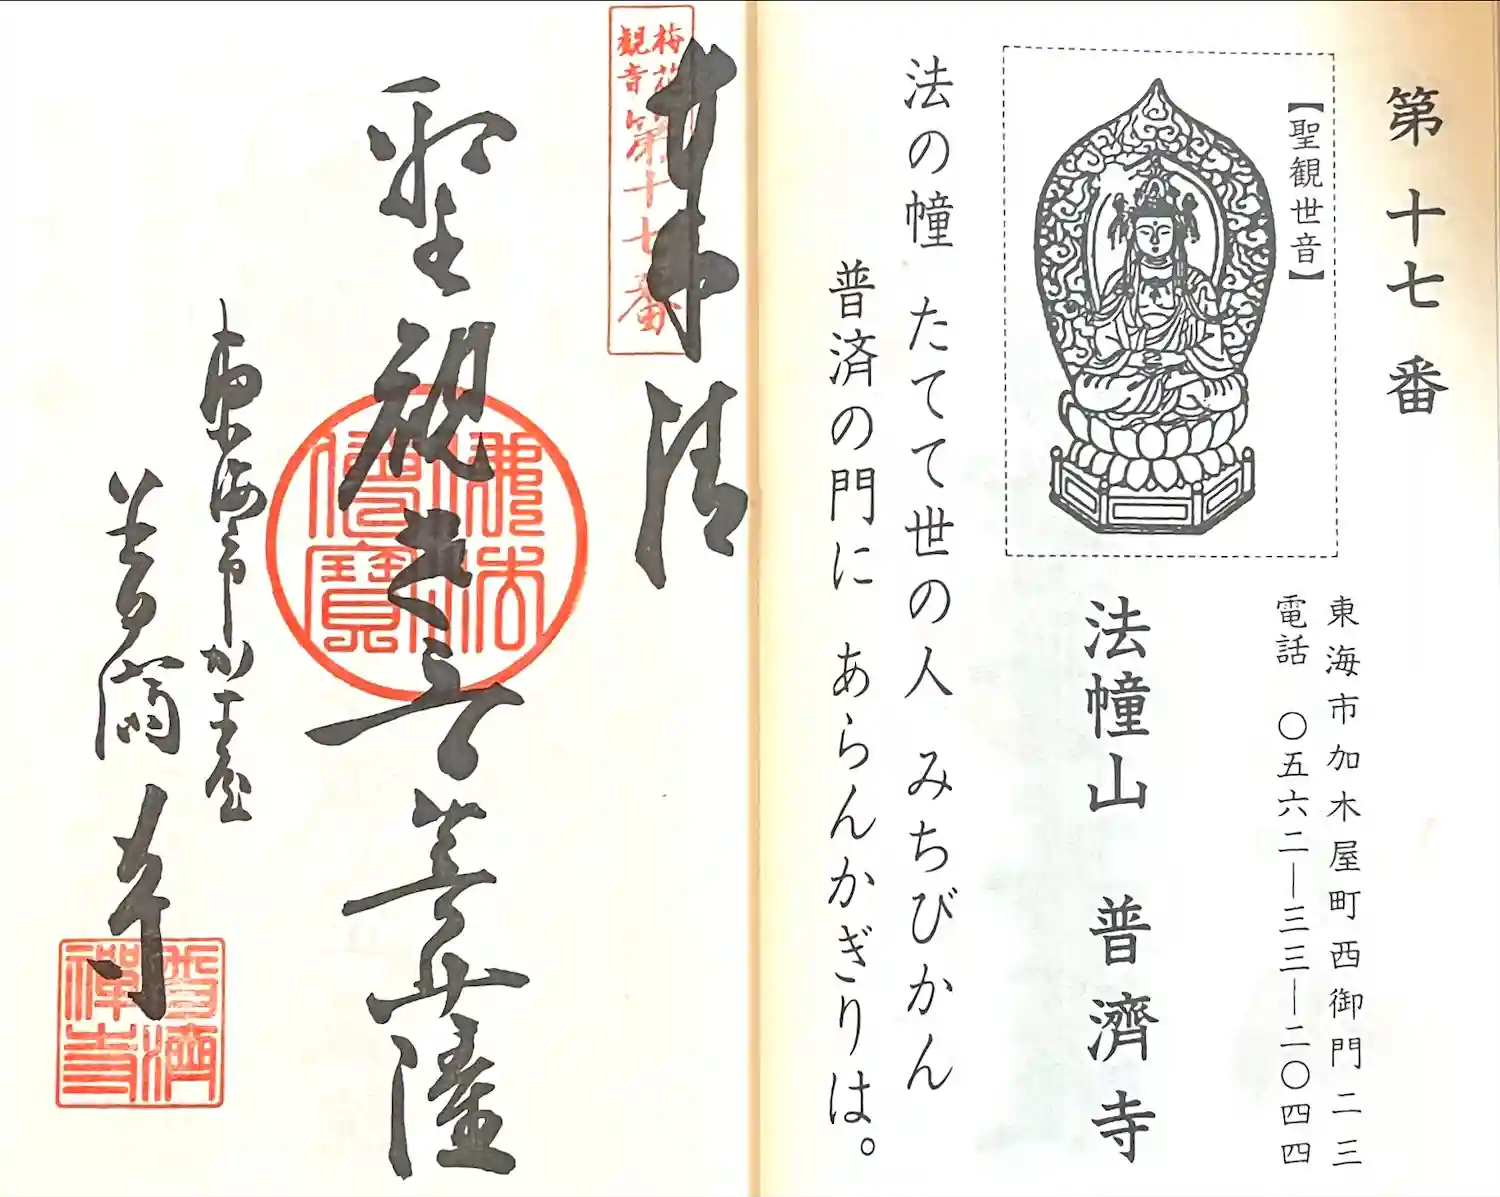 第十七番
【聖観世音】
東海市加木屋町西御門二三
電話 〇五六二―三三―二〇四四
法幢山 普濟寺
法の幢 たてて世の人 みちびかん
普済の門に あらんかぎりは。
奉拝
梅花
観音
第十七番
聖観世音菩薩
佛法
僧寶
東海市加木屋
普濟寺
普濟
禅寺